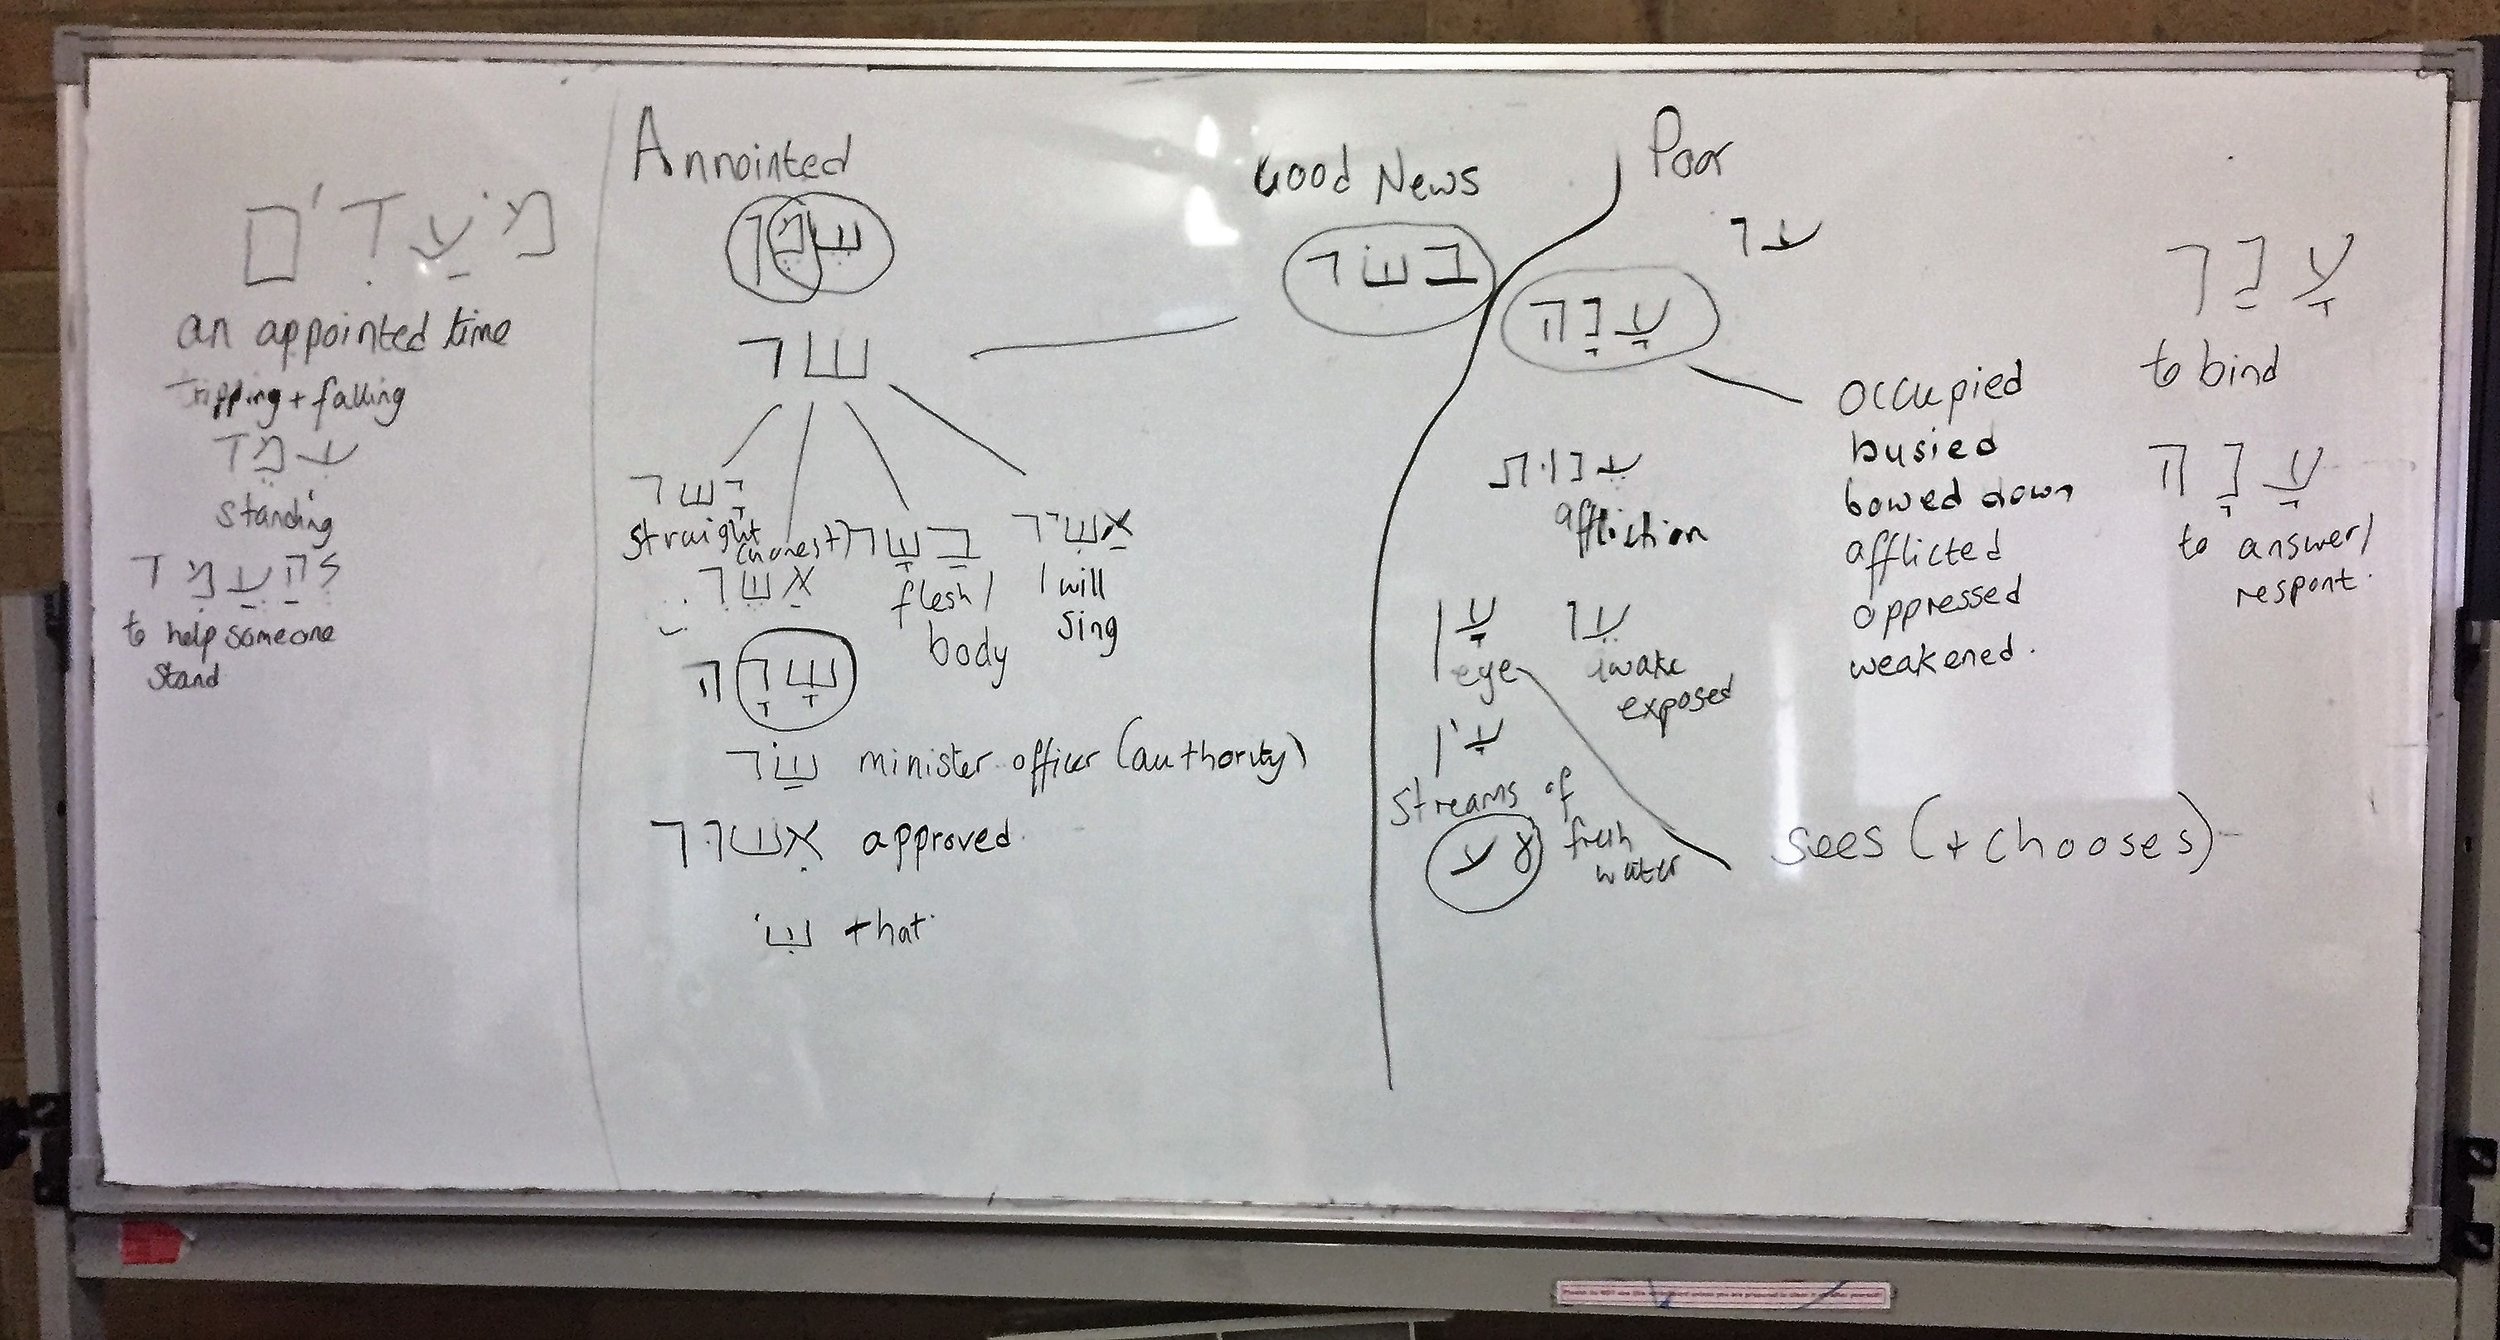 מֹעֲדִים
an appointed time
tripping + falling
עמַד
standing
לְהַעֲמִד
to help someone
stand
Annointed
שמן
שר
ישָר
straight
(honest)
בָשָר
flesh /
body
אַשִיר
I will
sing
אַשֵר
שָרָה
שַׂר minister officer (authority)
אִשרר approved.
שׁ that
Good News
בשׂר
Poor
ער
עָנָה
occupied
busied
bowed down
afflicted
oppressed
weakened.
ענות
affliction
eye
ער
awake
exposed
streams of
fresh
water
ע
sees (+ chooses)
to bind
עָנָה
to answer /
respont.